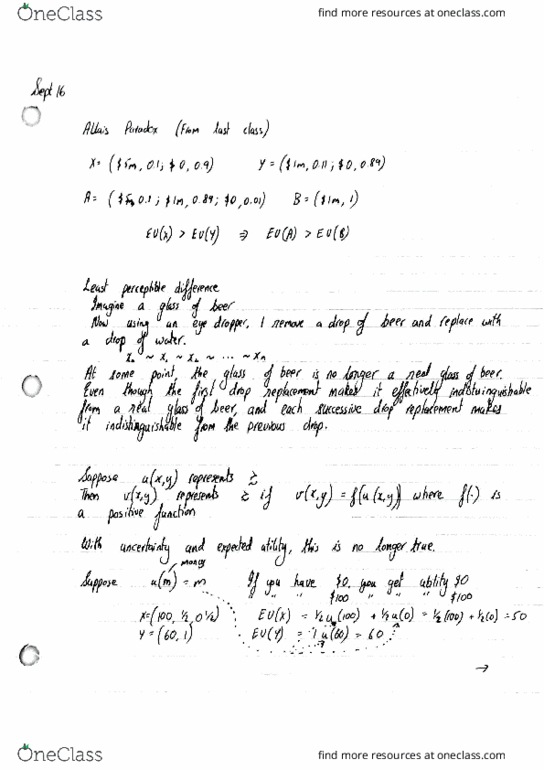 OneClass
find more resources at oneclass.com
Sept 16
Allais Paradox (From last class)
X= ($5m, 0.1; $0, 0.9)   Y = ($1m, 0.11; $0, 0.89)
A= ($5m, 0.1; $1m, 0.89; $0, 0.01)   B = ($1m, 1)
EU(X) > EU(Y) ⇒ EU(A) > EU(B)
Least perceptible difference
Imagine a glass of beer
Now using an eye dropper, I remove a drop of beer and replace with
a drop of water.
x₀ ~ x₁ ~ x₂ ~ ... ~ xₙ
At some point, the glass of beer is no longer a real glass of beer.
Even though the first drop replacement makes it effectively indistuinguishable
from a real glass of beer, and each successive drop replacement makes
it indistinguishable from the previous drop.
Suppose u(x,y) represents ≿
Then v(x,y) represents ≿ if v(x,y) = f(u(x,y)) where f(·) is
a positive function
With uncertainty and expected utility, this is no longer true.
money
Suppose u(m) = m   If you have $0, you get utility $0
" " $100 " " $100
X=(100, ½, 0 ½)   EU(X) = ½ u(100) + ½ u(0) = ½(100) + ½(0) = 50
Y = (60, 1)   EU(Y) = 1 u(60) = 60
→
OneClass
find more resources at oneclass.com